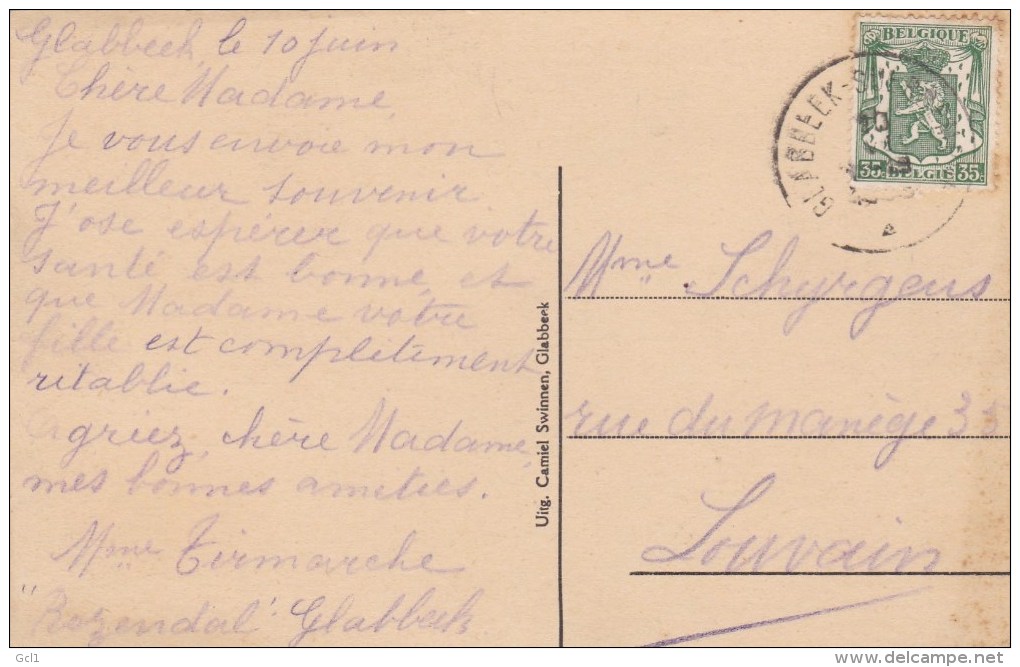 Glabbeek, le 10 juin
Chère Madame
Je vous envoie mon
meilleur souvenir
J'ose espérer que votre
santé est bonne, et
que Madame votre
fille est complètement
rétablie.
Agréez, chère Madame,
mes bonnes amitiés.
Mme Tirmarche
"Rozendal" Glabbeek
Uitg. Camiel Swinnen, Glabbeek
BELGIQUE
35c
BELGIE
35c
GLABBEEK-S
10
Mme Schyrgens
rue du manège 33
Louvain
Gcl1
delcampe.net